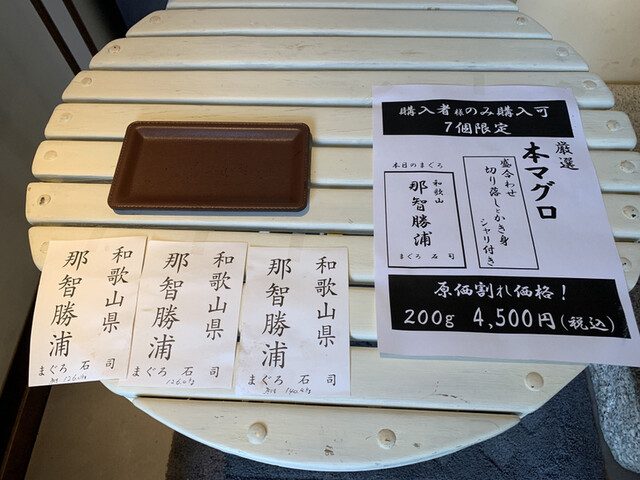 購入者様のみ購入可
7個限定
厳選
本マグロ
盛合わせ
切り落しとかき身
シャリ付き
本日のまぐろ
和歌山
那智勝浦
まぐろ 石司
原価割れ価格！
200g 4,500円(税込)
和歌山県
那智勝浦
まぐろ 石司
和歌山県
那智勝浦
まぐろ 石司
和歌山県
那智勝浦
まぐろ 石司